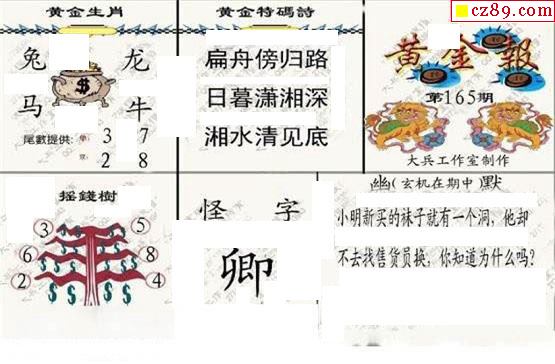 cz89.com
黄金生肖
兔 龙
$
马 牛
尾數提供: 3 7
2 8
黄金特碼詩
扁舟傍归路
日暮潇湘深
湘水清见底
黄金報
第165期
大兵工作室制作
摇錢樹
3 5
6 8
2 4
怪 字
卿
幽(玄机在期中)默
小明新买的袜子就有一个洞，他却
不去找售货员换，你知道为什么吗?